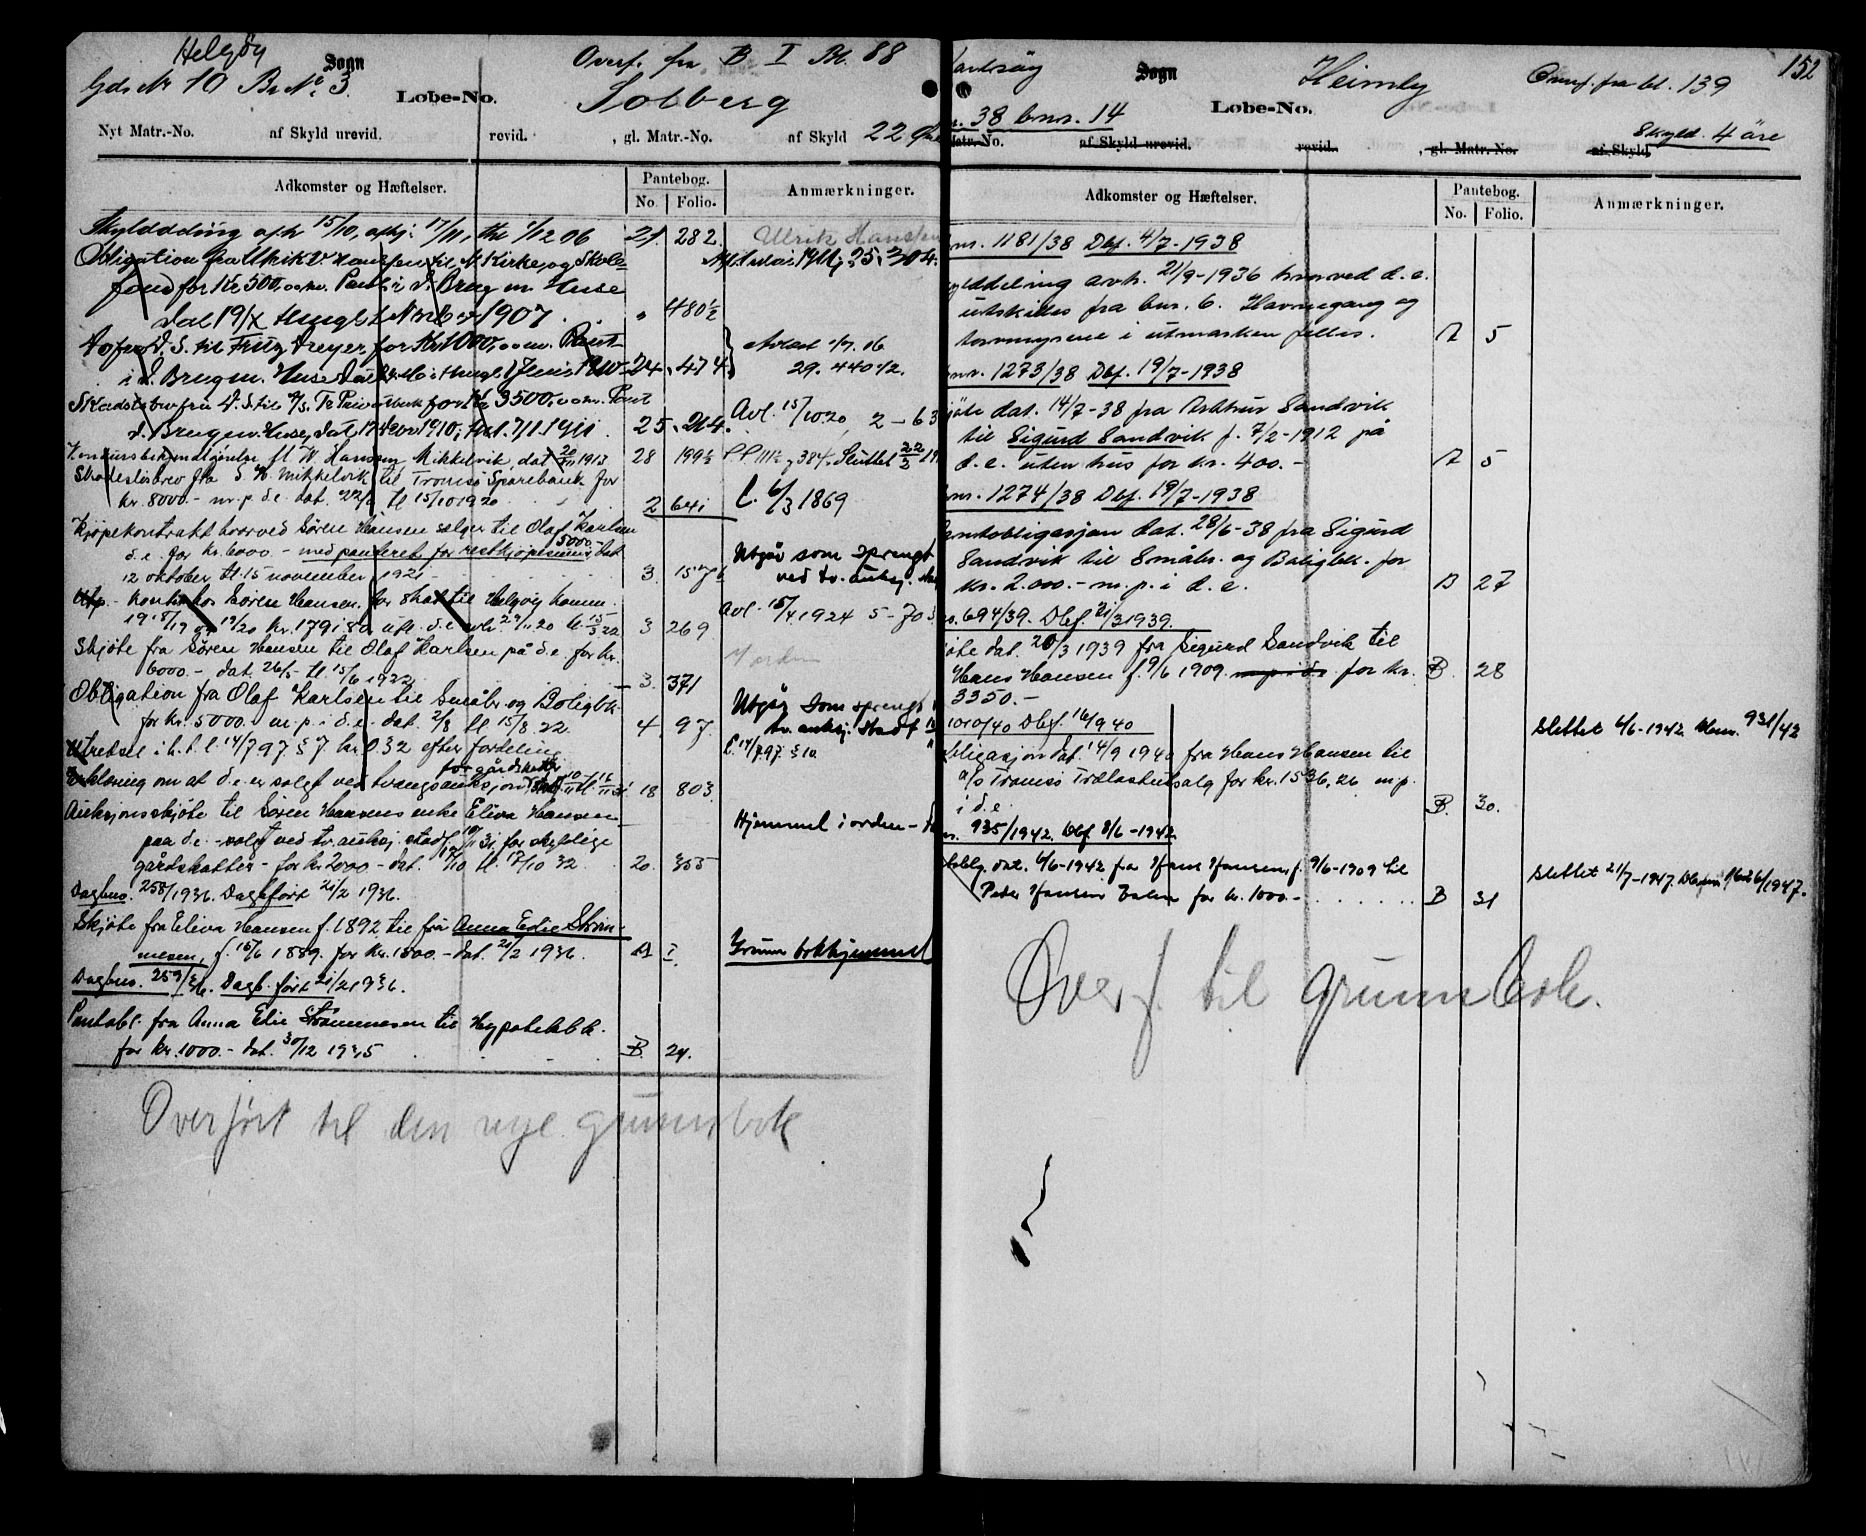 Helgøy Sogn
Gds Nr 10 Br Nr. 3.
Løbe-No.
Overf. fra B I Bl. 88
Solberg
Nyt Matr.-No. af Skyld urevid. revid. , gl. Matr.-No. af Skyld 22 øre
Adkomster og Hæftelser. Pantebog. No. Folio. Anmærkninger.
Skylddeling afh. 15/10, aphj. 17/11, thl 1/12 06 21 282. Ulrik Hanssen
Obligation fra Ulrik W Hanssen til N. Kirke og Skole-
fond for Kr 500,00 m. Pant i d. Brug m. Huse
dat 19/X thingl. 2 Nvbr 1907. " 480½
do fra d. S. til Fritz Dreyer for Kr 1000,00 m. Pant Avlest 1/7. 16
i d. Brug m. Huse 1 Juni 1910 24. 474 29. 440½.
Skadesløsbrev fra d. S. til Privatbank for Kr 3500,00 m. Pant
d. Brug m. Huse, dat 17 Novbr 1910, 7/1 1911. 25. 214. Avl. 15/10 20, 2 - 63
Konkursbekendtgjørelse Hanssen, Mikkelvik, dat 1913 28 199½ Sluttet
Skadesløsbrev fra S H Mikkelvik til Tromsø Sparebank for
kr. 8000.- m. p. d. e. dat. 22/9 tl 15/10 1920 2 641 L. 6/3 1869
Kjøpekontrakt hvorved Søren Hansen sælger til Olaf Karlsen
d. e. for kr. 6000.- med panteret for restkjøpesum 5000.- dat
12 oktober tl. 15 november 1921 - 3. Utgår som sprengt
ved tv. auksj.
Utp. - kontra hos Søren Hansen for skat til Helgøy komm.
1918/19 og 19/20 kr. 179,80 3 269 Avl. 15/4 1924 5 - 70
Skjøte fra Søren Hansen til Olaf Karlsen på d. e. for kr.
6000.- dat. 26/5 - tl 15/6 1922 3. 371 I orden
Obligation fra Olaf Karlsen til Småbr. og Boligbk.
for kr. 5000.- m. p. i d. e. dat. 2/8 tl 15/8 22. 4. 97. Utgår som sprengt
tv. auksj. Stadf
Utredsel i h. t. l. 14/7 97 § 7 kr. 0,32 efter fordeling L. 14/7 97. § 10.
for gårdskatter
Erklæring om at d. e. er solgt ved tvangsauksjon 18 803.
Auksjonsskjøte til Søren Hansens enke Eliva Hansen
paa d. e. - solgt ved tv. auksj. stadf. 10/11 31 for skyldige Hjemmel i orden -
gårdskatter - for kr. 2000 - dat. 12/10 tl. 17/10 32. 20. 355
Dagbnr. 258/1936. Dagbført 21/2 1936.
Skjøte fra Eliva Hansen f. 1892 til frû Anna Edie Strøm-
mesen, f. 15/6 1889. for kr. 1500. - dat. 21/2 1936. A I. Grunnbokhjemmel
Dagbnr. 259/36. Dagb. ført 21/2 1936.
Pantobl. fra Anna Edie Strømmesen til Hypotekbk.
for kr. 1000.- dat. 30/12 1935 B. 24.
Overført til den nye grunnbok
Karlsøy Sogn Heimly Overf. fra bl. 139 152
Løbe-No.
38 bnr. 14
Matr.-No. af Skyld urevid. revid. , gl. Matr.-No. af Skyld Skyld. 4 øre
Adkomster og Hæftelser. Pantebog. No. Folio. Anmærkninger.
nr. 1181/38 Dbf. 4/7-1938
ylddeling avh. 21/9-1936 hvorved d. e.
utskilles fra bnr. 6. Havnegang og
torvmyrene i utmarken felles. A 5
nr. 1273/38 Dbf. 19/7-1938
jøte dat. 14/7-38 fra Arthur Sandvik
til Sigurd Sandvik f. 7/2-1912 på
d. e. uten hus for kr. 400.- A 5
nr. 1274/38 Dbf. 19/7-1938
antobligasjon dat. 28/6-38 fra Sigurd
Sandvik til Småbr. og Boligbk. for
kr. 2.000.- m. p. i d. e. B 27
694/39. Dbf. 21/3 1939.
jøte dat. 20/3 1939 fra Sigurd Sandvik til
Hans Hansen f. 9/6 1909. m p i d. e. for kr. B. 28
3350.-
1010/40 Dbf. 16/9 40 Slettet 6/6-1942 931/42
bligasjon dat. 14/9 1940 fra Hans Hansen til
a/s Tromsø Trælastutsalg for kr. 1536,26 m. p.
i d. e. B. 30.
935/1942. Dbf. 8/6-1942.
oblg. dat. 6/6-1942 fra Hans Hansen, f. 9/6-1909 til Slettet 21/7-1947.
Peder Hansen for kr. 1000.- B 31
Overf. til grunnbok.